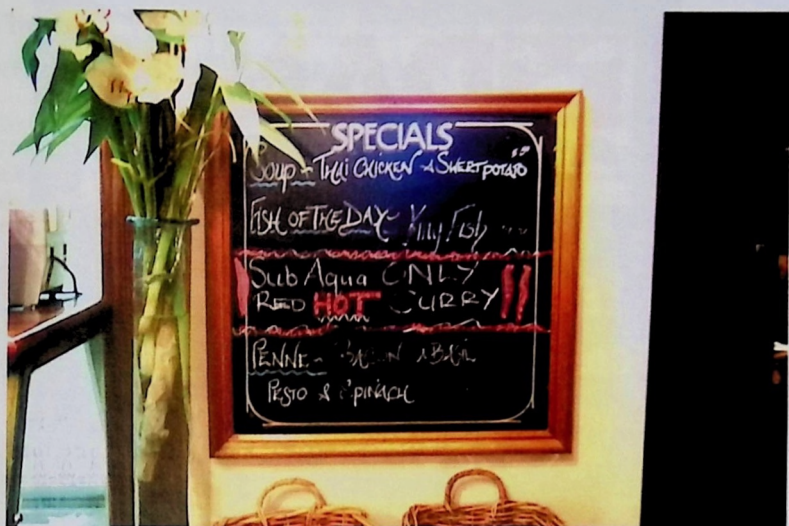 SPECIALS
Soup - THAI CHICKEN & SWEET POTATO
FISH OF THE DAY - Fish
Sub Aqua ONLY
RED HOT CURRY !!
PENNE - BACON & BASIL
PESTO & SPINACH